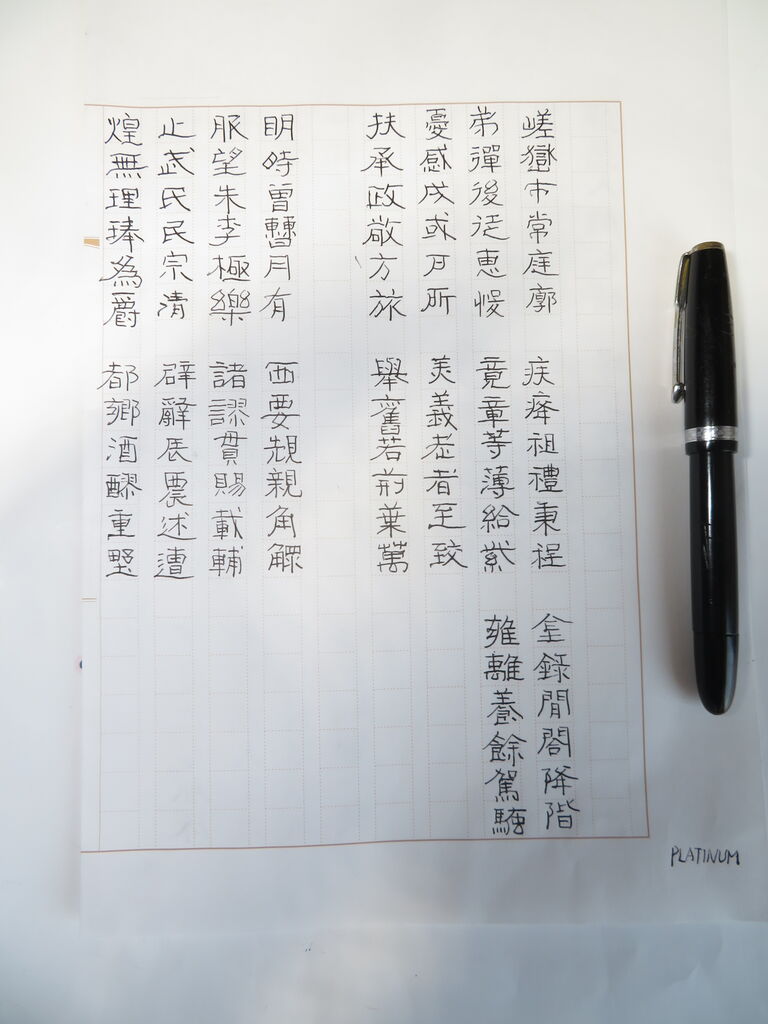 嵯嶽市常庭廓
弟彈後徒惠慢
憂感戌或戶所
扶承政敬方旅
明時曾轊月有
服望朱李極樂
止武氏民宗清
煌無理琫為爵
疾瘁祖禮秉程
竟章等薄給紫
美義老者至致
舉舊若前葉萬
西要規親角解
諸謬貫賜載輔
辟辭辰農述遭
都鄉酒醪重墅
金錄閒閤降階
雍離養餘駕騁
PLATINUM